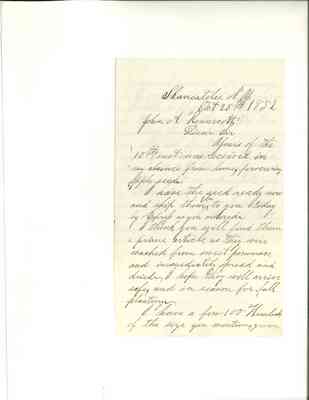 Skaneateles N.Y.
Oct 25th 1882
John A.
Dear Sir
Yours of the
10th inst was received in
my absence from home, procuring
apple seeds.
I have the seed ready now
and ship them to you today
by Express as you ordered.
I think you will find them
a prime article as they were
washed from sweet pomace
and immediately spread and
dried. I hope they will arrive
safe, and in season for fall
planting.
I have a few 100 Hemlock
of the size you mention, grown